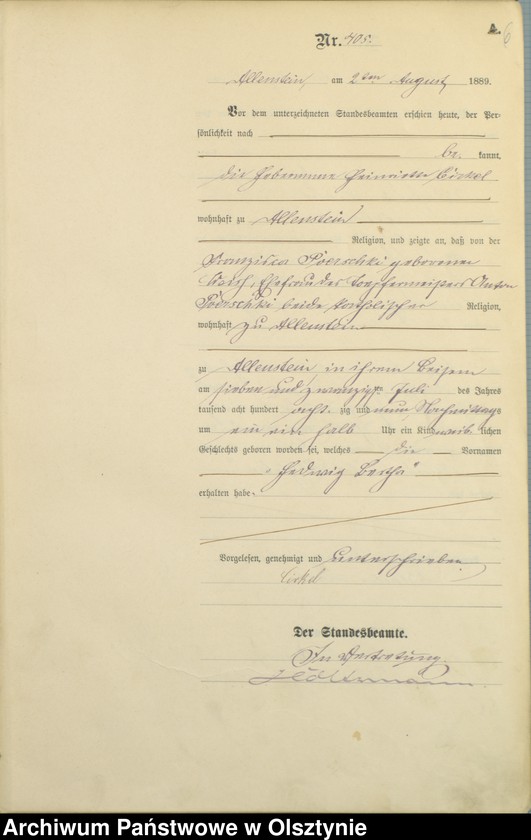 Nr. 405.
Allenstein, am 2ten August 1889.
Vor dem unterzeichneten Standesbeamten erschien heute, der Per-
sönlichkeit nach
be kannt,
die Hebamme Henriette
wohnhaft zu Allenstein
Religion, und zeigte an, daß von der
Franziska geborenen
Ehefrau des Töpfermeisters Anton
beide katholischer Religion,
wohnhaft zu Allenstein
zu Allenstein in ihrem Beisein
am sieben und zwanzigsten Juli des Jahres
tausend acht hundert acht zig und neun Nachmittags
um ein ein halb Uhr ein Kind weib lichen
Geschlechts geboren worden sei, welches die Vornamen
"Hedwig Bertha"
erhalten habe.
Vorgelesen, genehmigt und unterschrieben
Der Standesbeamte.
In Vertretung
Archiwum Państwowe w Olsztynie